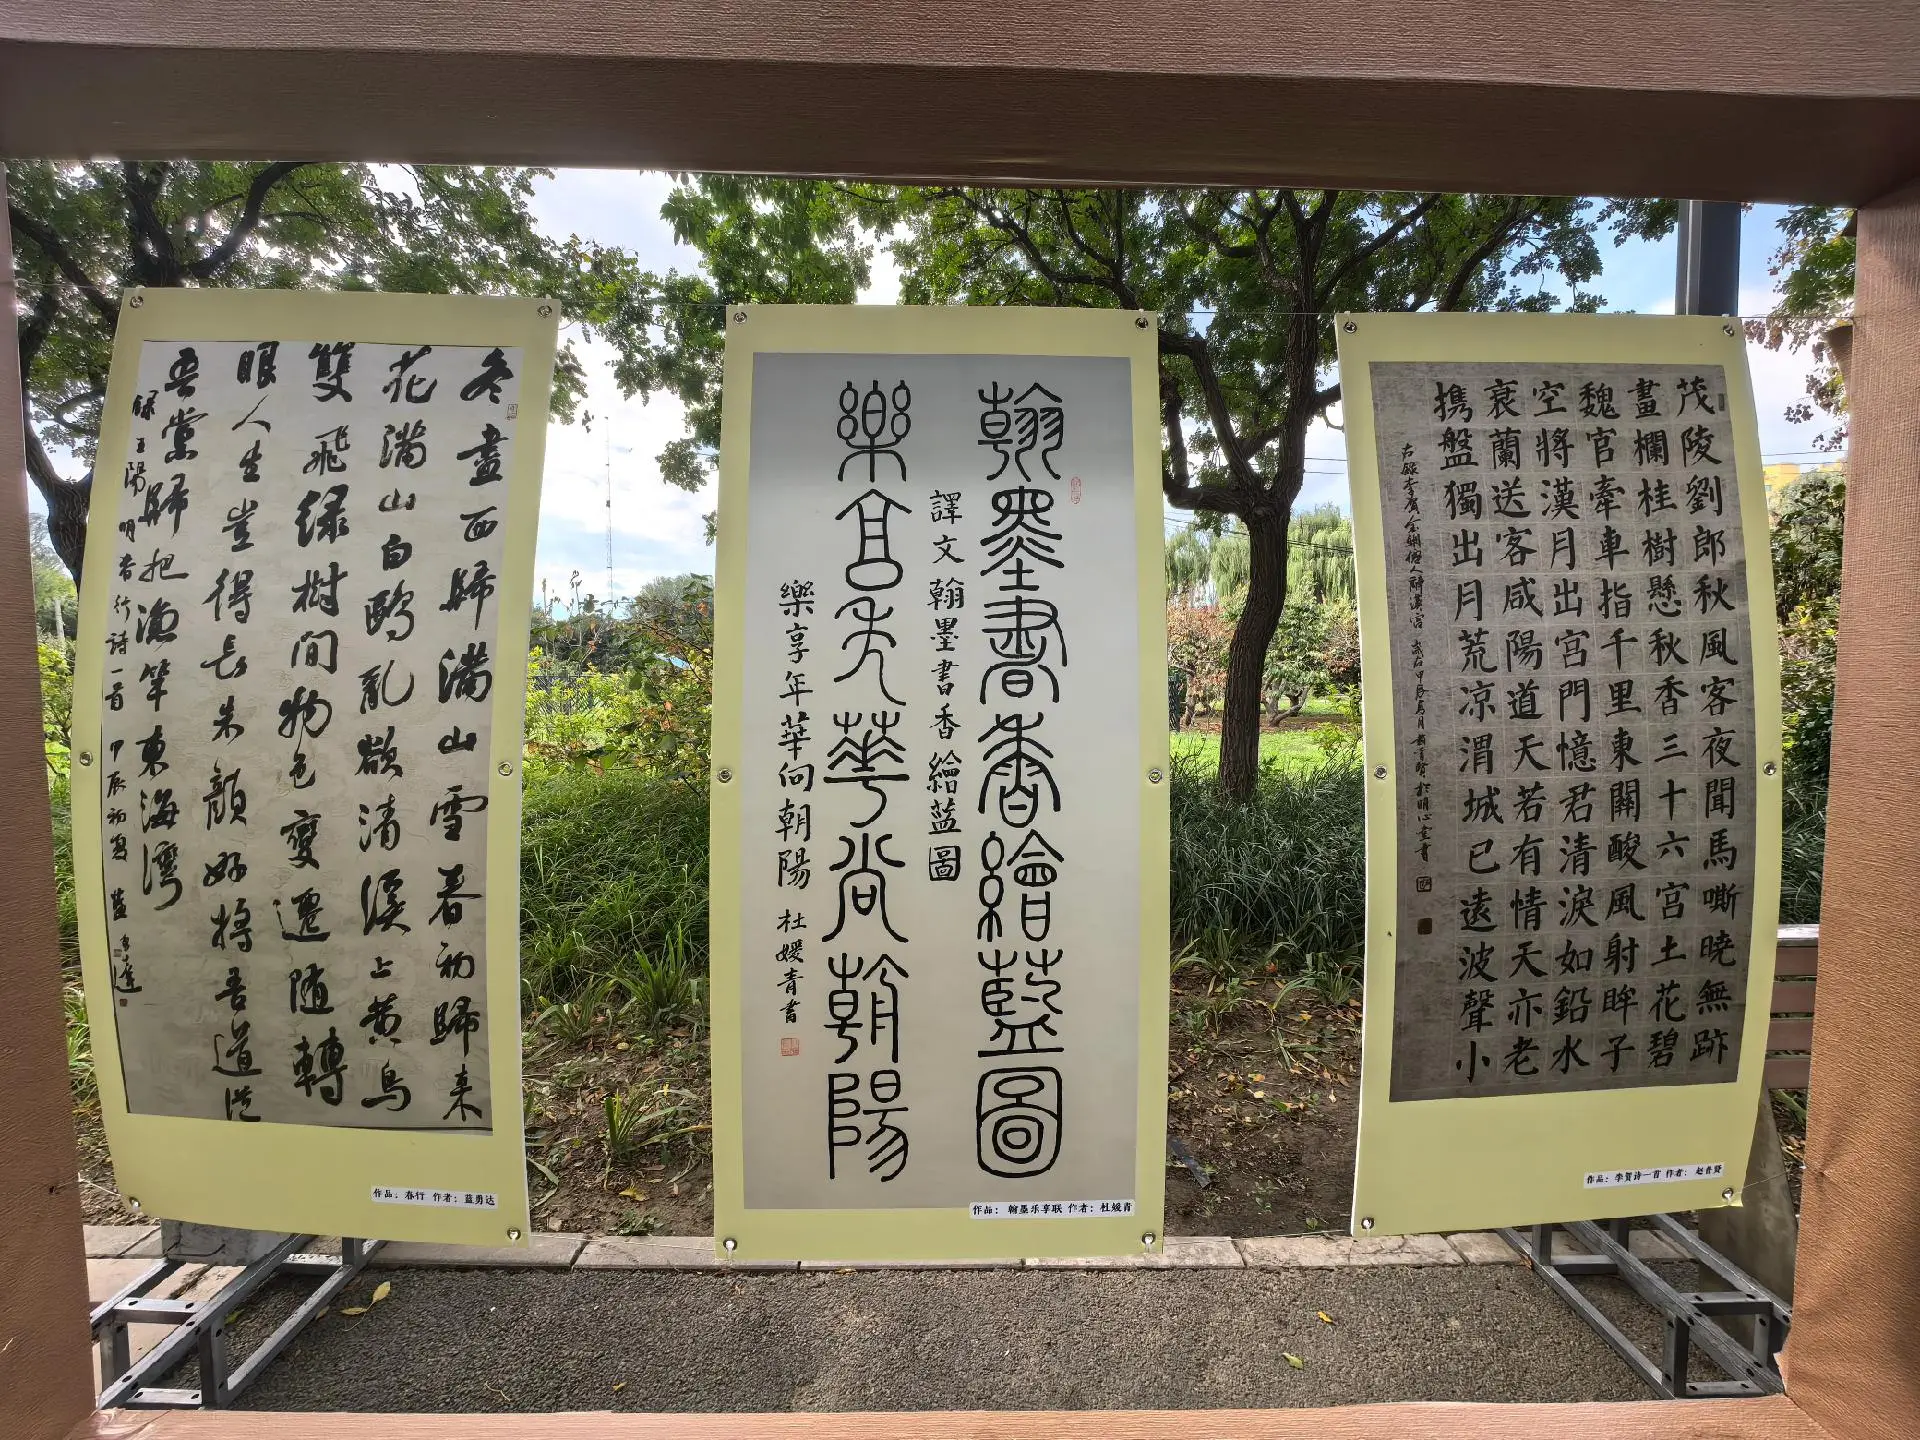 冬盡西歸滿山雪春初歸来
花滿山白鷗亂欲清溪上黄鳥
雙飛绿樹間物色變遷随轉
眼人生豈得長朱顔好將吾道從
吾黨歸把漁竿東海灣
録王陽明春行詩一首 甲辰初夏 蓝勇達
作品:春行 作者:蓝勇达
翰墨書香繪藍圖
譯文翰墨書香繪藍圖
樂享年華向朝陽
樂享年華向朝陽 杜媛青書
作品:翰墨乐享联 作者:杜媛青
茂陵劉郎秋風客夜聞馬嘶曉無跡
畫欄桂樹懸秋香三十六宮土花碧
魏官牽車指千里東關酸風射眸子
空將漢月出宮門憶君清淚如鉛水
衰蘭送客咸陽道天若有情天亦老
携盤獨出月荒凉渭城已遠波聲小
右錄李賀金銅僊人辭漢宮 歲在甲辰 月 趙晋賢於明心堂書
作品:李贺诗一首 作者:赵晋贤